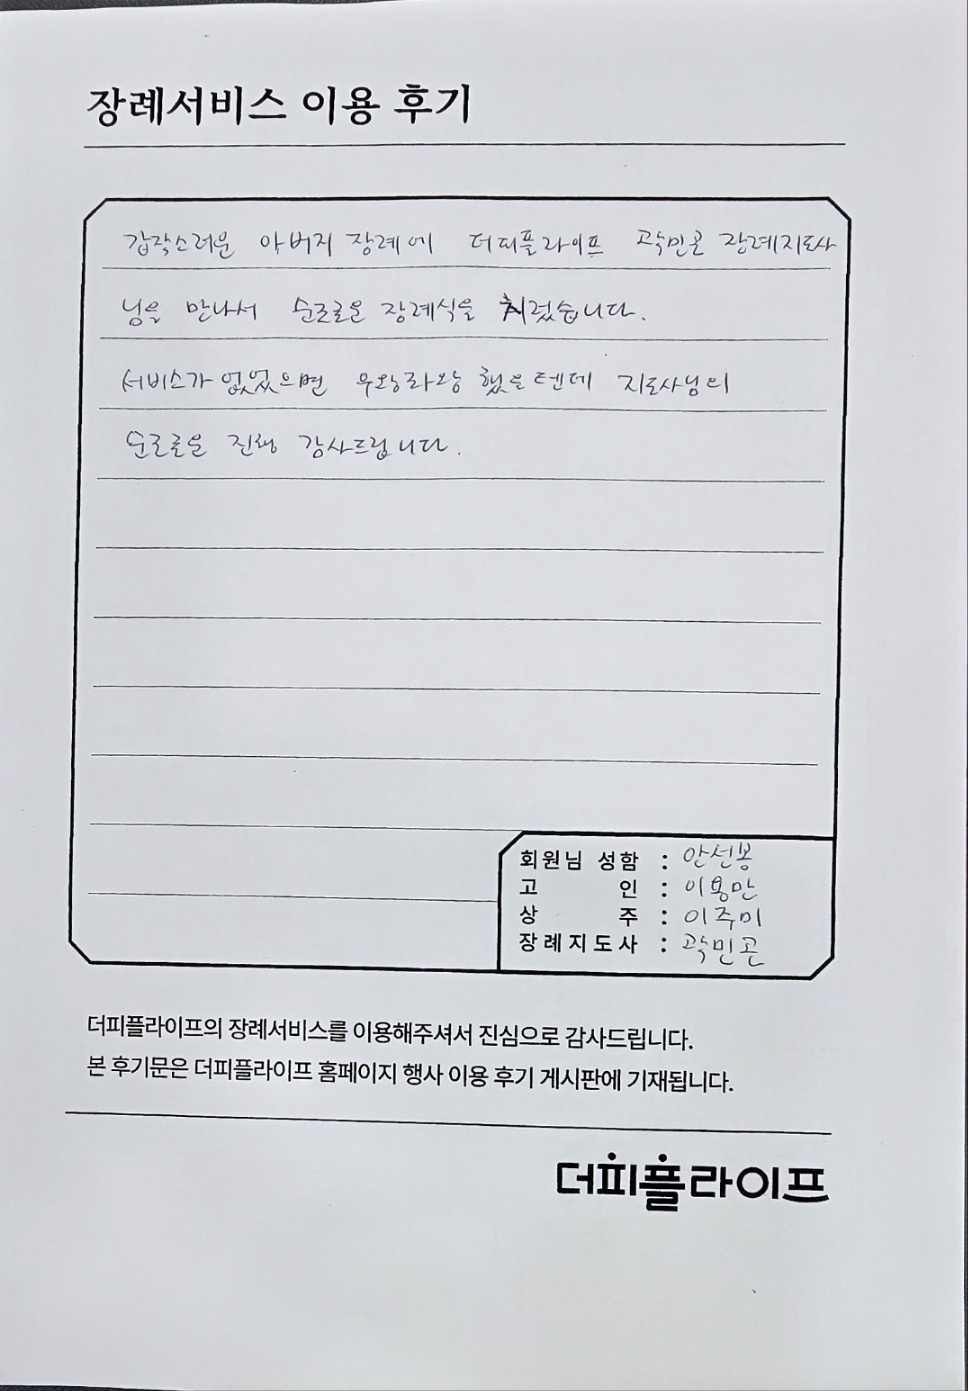 장례서비스 이용 후기
갑작스러운 아버지 장례에 더피플라이프 곽민곤 장례지도사
님을 만나서 순조로운 장례식을 치렀습니다.
서비스가 없었으면 우왕좌왕 했을텐데 지도사님의
순조로운 진행 감사드립니다.
회원님 성함 : 안선봉
고 인 : 이용만
상 주 : 이주미
장례지도사 : 곽민곤
더피플라이프의 장례서비스를 이용해주셔서 진심으로 감사드립니다.
본 후기문은 더피플라이프 홈페이지 행사 이용 후기 게시판에 기재됩니다.
더피플라이프